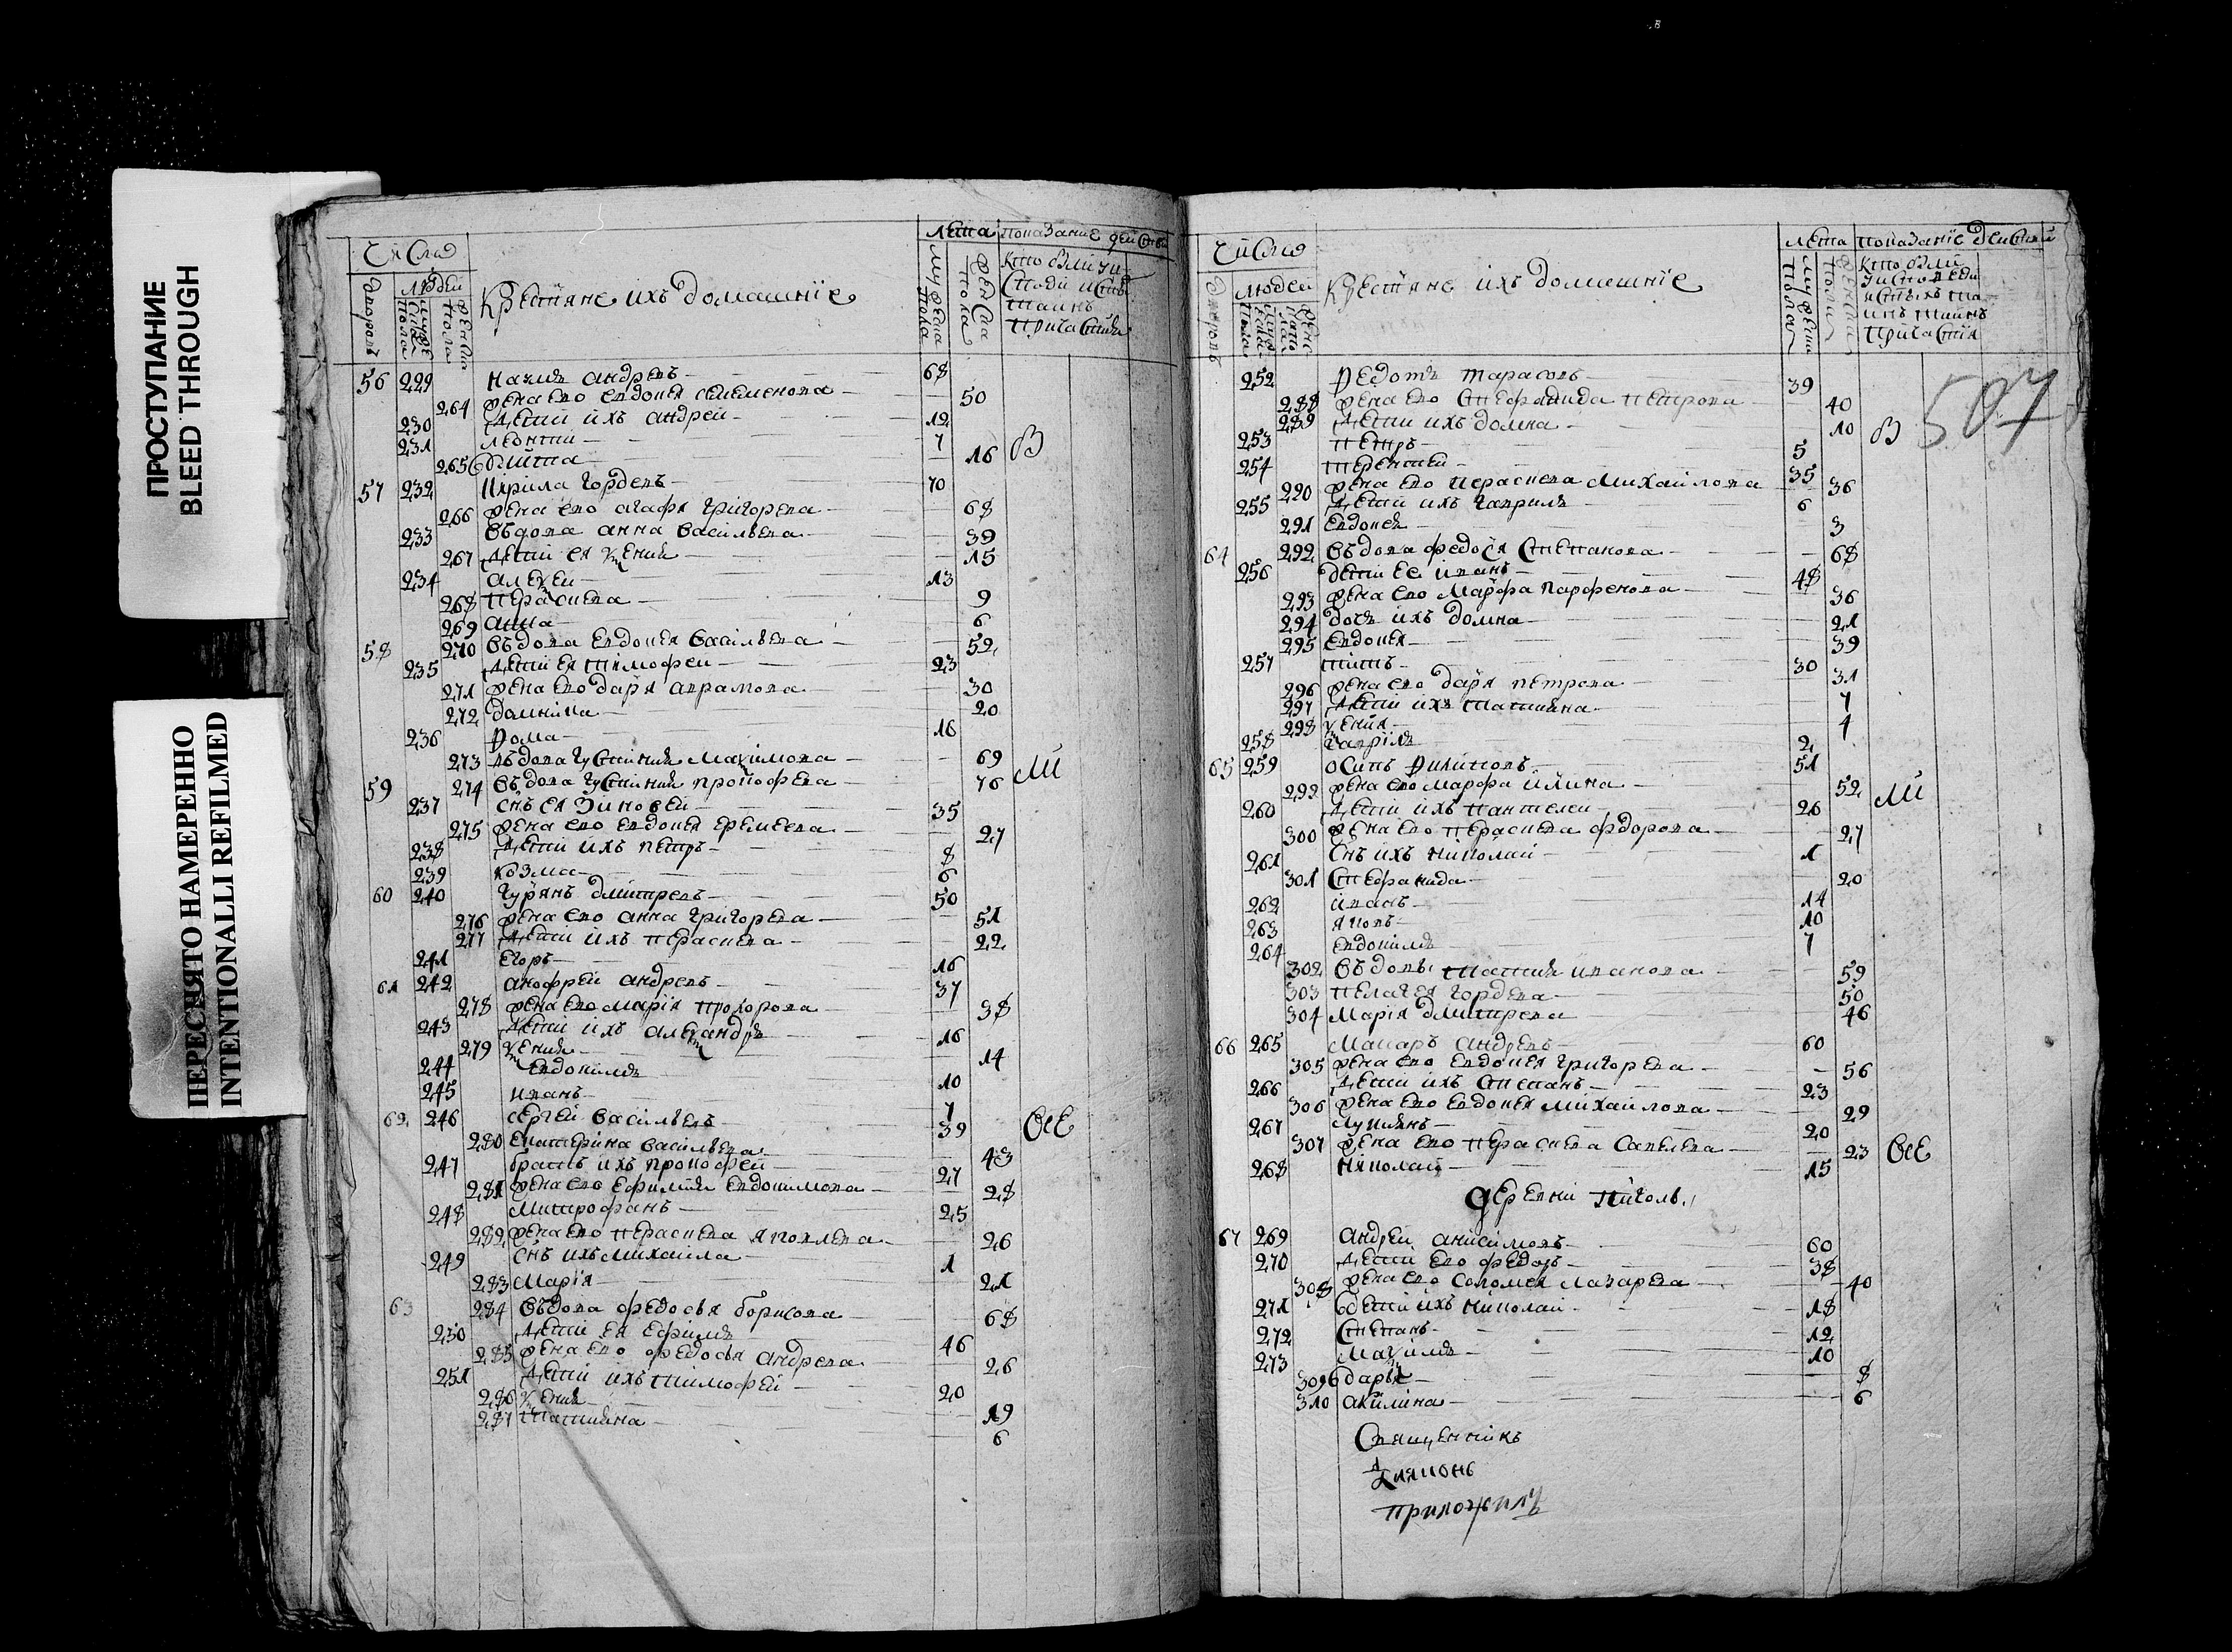 ПРОСТУПАНИЕ
BLEED THROUGH
ПЕРЕСНЯТО НАМЕРЕННО
INTENTIONALLI REFILMED
Числа
Крестяне ихъ домашнïе
лета
показание
людей
56 229 андревъ 68
264 жена ево евдокия семенова 50
230 дети ихъ андрей 12
231 леонтии 7
265 16 В
57 232 Кирила гордевъ 70
266 жена ево агафя григорева 68
233 въдова анна василвева 39
267 дети ея ѯения 15
234 алеѯеи 13
268 параскева 9
269 анна 6
58 270 въдова евдокия василвева 52
235 дети ея тимофеи 23
271 жена ево даря аврамова 30
272 домникиа 20
236 Фома 16
273 въдова устиния маѯимова 69
59 274 въдова устиния прокофева 76 ли
237 снъ ея зиновеи 35
275 жена ево евдокия еремеева 27
238 дети ихъ петръ 8
239 козма 6
60 240 гурянъ дмитревъ 50
276 жена ево анна григорева 51
277 дети ихъ параскева 22
241 егоръ 16
61 242 анофреи андревъ 37
278 жена ево мария прохорова 38
243 дети ихъ алеѯандръ 16
279 ѯения 14
244 евдокимъ 10
245 иванъ 7
62 246 сергеи василвевъ 39 все
280 екатерина василвева 43
247 братъ ихъ прокофеи 27
281 жена ево ефимия евдокимова 28
248 митрофанъ 25
282 жена ево параскева яковлева 26
249 снъ ихъ михаила 1
283 мария 21
63 284 въдова федосья борисова 68
250 дети ея ефимъ 46
285 жена ево федосья андрева 26
251 дети ихъ тимофеи 20
286 ѯения 19
287 татияна 6
Числа
Крестяне ихъ домашнïе
лета
показанïе
людей
507
252 Федотъ тарасовъ 39
288 жена ево стефанида петрова 40
289 дети ихъ домна 10 В
253 петръ 5
254 терентеи 35
290 жена ево параскева михаилова 36
255 дети ихъ гаврила 6
291 евдокея 3
64 292 въдова федося степанова 68
256 дети ее иванъ 48
293 жена ево марфа парфенова 36
294 дочь ихъ домна 21
295 евдокия 39
257 титъ 30
296 жена ево даря петрова 31
297 дети ихъ татияна 7
298 ѯения 4
258 гаврïла 2
65 259 осипъ Филиповъ 51
299 жена ево марфа илина 52 ли
260 дети ихъ пантелеи 26
300 жена ево параскева федорова 27
261 снъ ихъ николаи 1
301 стефанида 20
262 иванъ 14
263 яковъ 10
264 евдокимъ 7
302 въдовы татияна иванова 59
303 пелагея гордева 50
304 марïя дмитрева 46
66 265 макаръ андревъ 60
305 жена ево евдокия григорева 56
266 дети ихъ степанъ 23
306 жена ево евдокия михаилова 29
267 лукиянъ 20
307 жена ево параскева савелева 23 все
268 николаи 15
деревни
67 269 андрей анисимовъ 60
270 дети ево федоръ 38
308 жена ево соломея лазарева 40
271 дети ихъ николаи 18
272 степанъ 12
273 маѯимъ 10
309 дарья 8
310 акилина 6
Священникъ
приложилъ